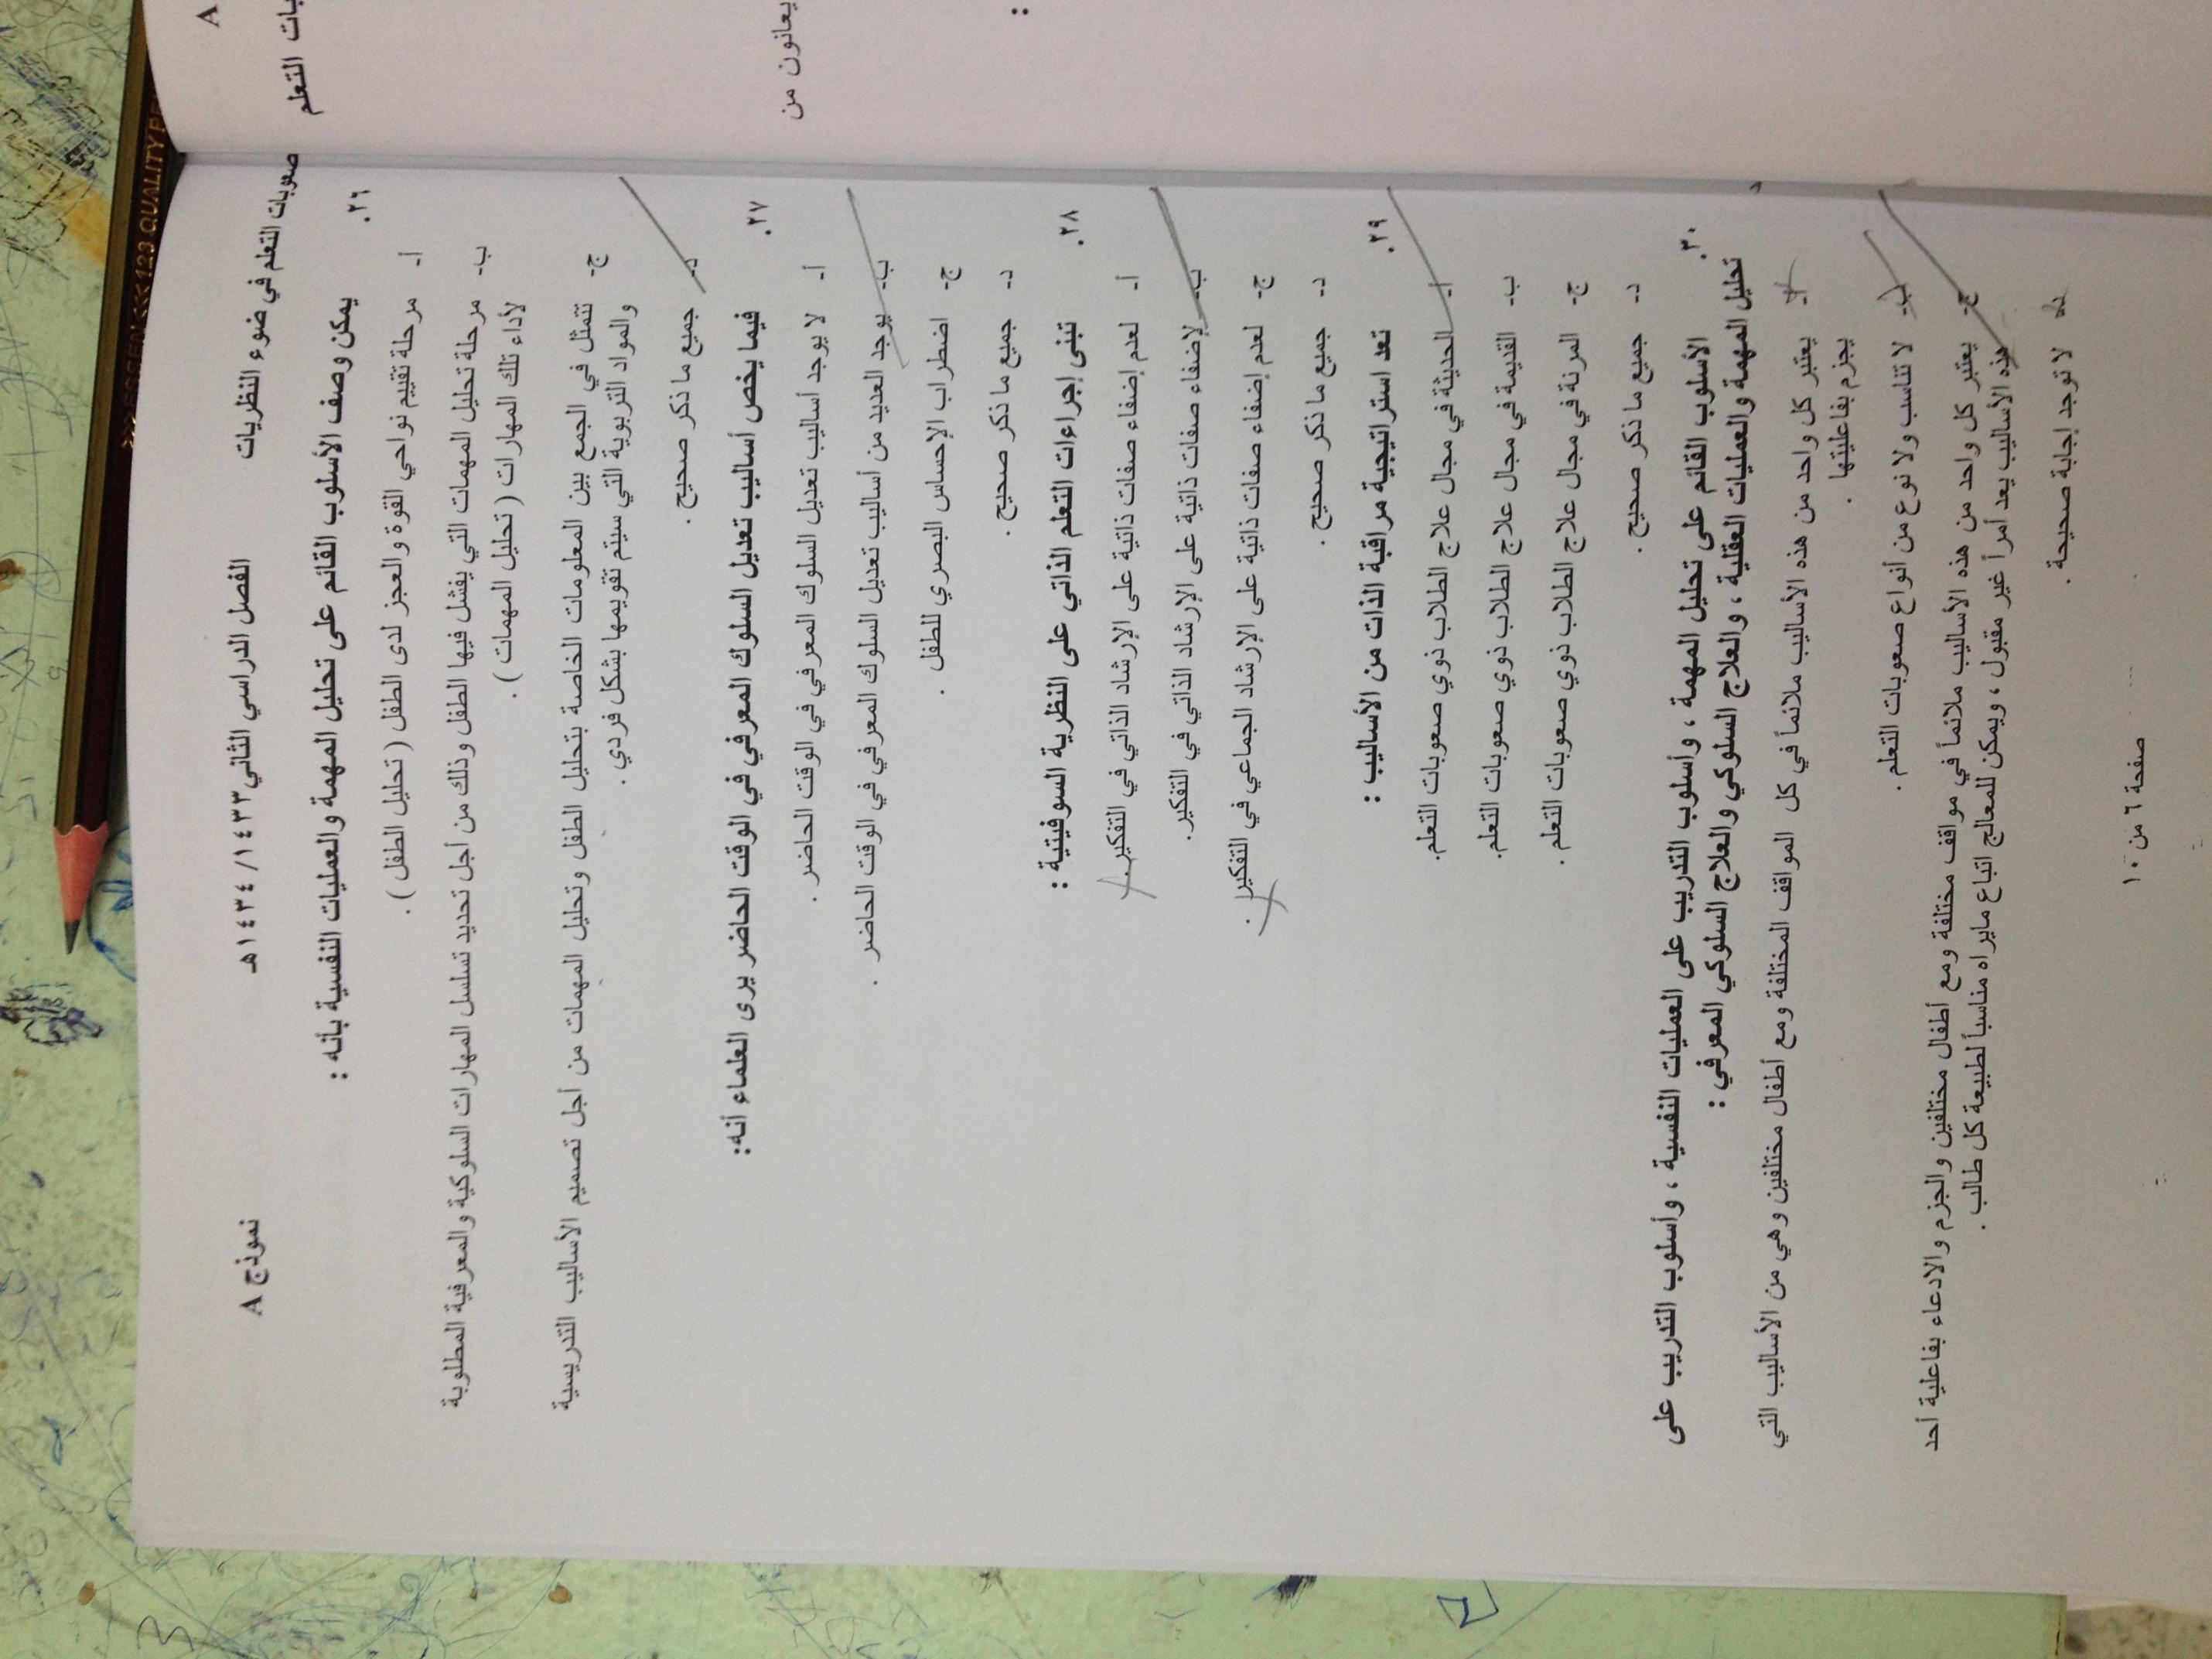 صعوبات التعلم في ضوء النظريات الفصل الدراسي الثاني ١٤٣٣/ ١٤٣٤هـ نموذج A
٢٦. يمكن وصف الأسلوب القائم على تحليل المهمة والعمليات النفسية بأنه :
أ- مرحلة تقييم نواحي القوة والعجز لدى الطفل ( تحليل الطفل ) .
ب- مرحلة تحليل المهمات التي يفشل فيها الطفل وذلك من أجل تحديد تسلسل المهارات السلوكية والمعرفية المطلوبة
لأداء تلك المهارات ( تحليل المهمات ) .
ج- تتمثل في الجمع بين المعلومات الخاصة بتحليل الطفل وتحليل المهمات من أجل تصميم الأساليب التدريسية
والمواد التربوية التي سيتم تقويمها بشكل فردي .
د- جميع ما ذكر صحيح .
٢٧. فيما يخص أساليب تعديل السلوك المعرفي في الوقت الحاضر يرى العلماء أنه:
أ- لا يوجد أساليب تعديل السلوك المعرفي في الوقت الحاضر .
ب- يوجد العديد من أساليب تعديل السلوك المعرفي في الوقت الحاضر .
ج- اضطراب الإحساس البصري للطفل .
د- جميع ما ذكر صحيح .
٢٨. تبنى إجراءات التعلم الذاتي على النظرية السوفيتية :
أ- لعدم إضفاء صفات ذاتية على الإرشاد الذاتي في التفكير .
ب- لإضفاء صفات ذاتية على الإرشاد الذاتي في التفكير.
ج- لعدم إضفاء صفات ذاتية على الإرشاد الجماعي في التفكير .
د- جميع ما ذكر صحيح .
٢٩. تعد استراتيجية مراقبة الذات من الأساليب :
أ- الحديثة في مجال علاج الطلاب ذوي صعوبات التعلم.
ب- القديمة في مجال علاج الطلاب ذوي صعوبات التعلم.
ج- المرنة في مجال علاج الطلاب ذوي صعوبات التعلم .
د- جميع ما ذكر صحيح .
٣٠. الأسلوب القائم على تحليل المهمة ، وأسلوب التدريب على العمليات النفسية ، وأسلوب التدريب على
تحليل المهمة والعمليات العقلية ، والعلاج السلوكي والعلاج السلوكي المعرفي :
أ- يعتبر كل واحد من هذه الأساليب ملائماً في كل المواقف المختلفة ومع أطفال مختلفين وهي من الأساليب التي
يجزم بفاعليتها .
ب- لا تناسب ولا نوع من أنواع صعوبات التعلم .
ج- يعتبر كل واحد من هذه الأساليب ملائماً في مواقف مختلفة ومع أطفال مختلفين والجزم والادعاء بفاعلية أحد
هذه الأساليب يعد أمراً غير مقبول ، ويمكن للمعالج اتباع مايراه مناسباً لطبيعة كل طالب .
د- لا توجد إجابة صحيحة .
صفحة ٦ من ١٠
A
بات التعلم
يعانون من
:
QUALITY PE